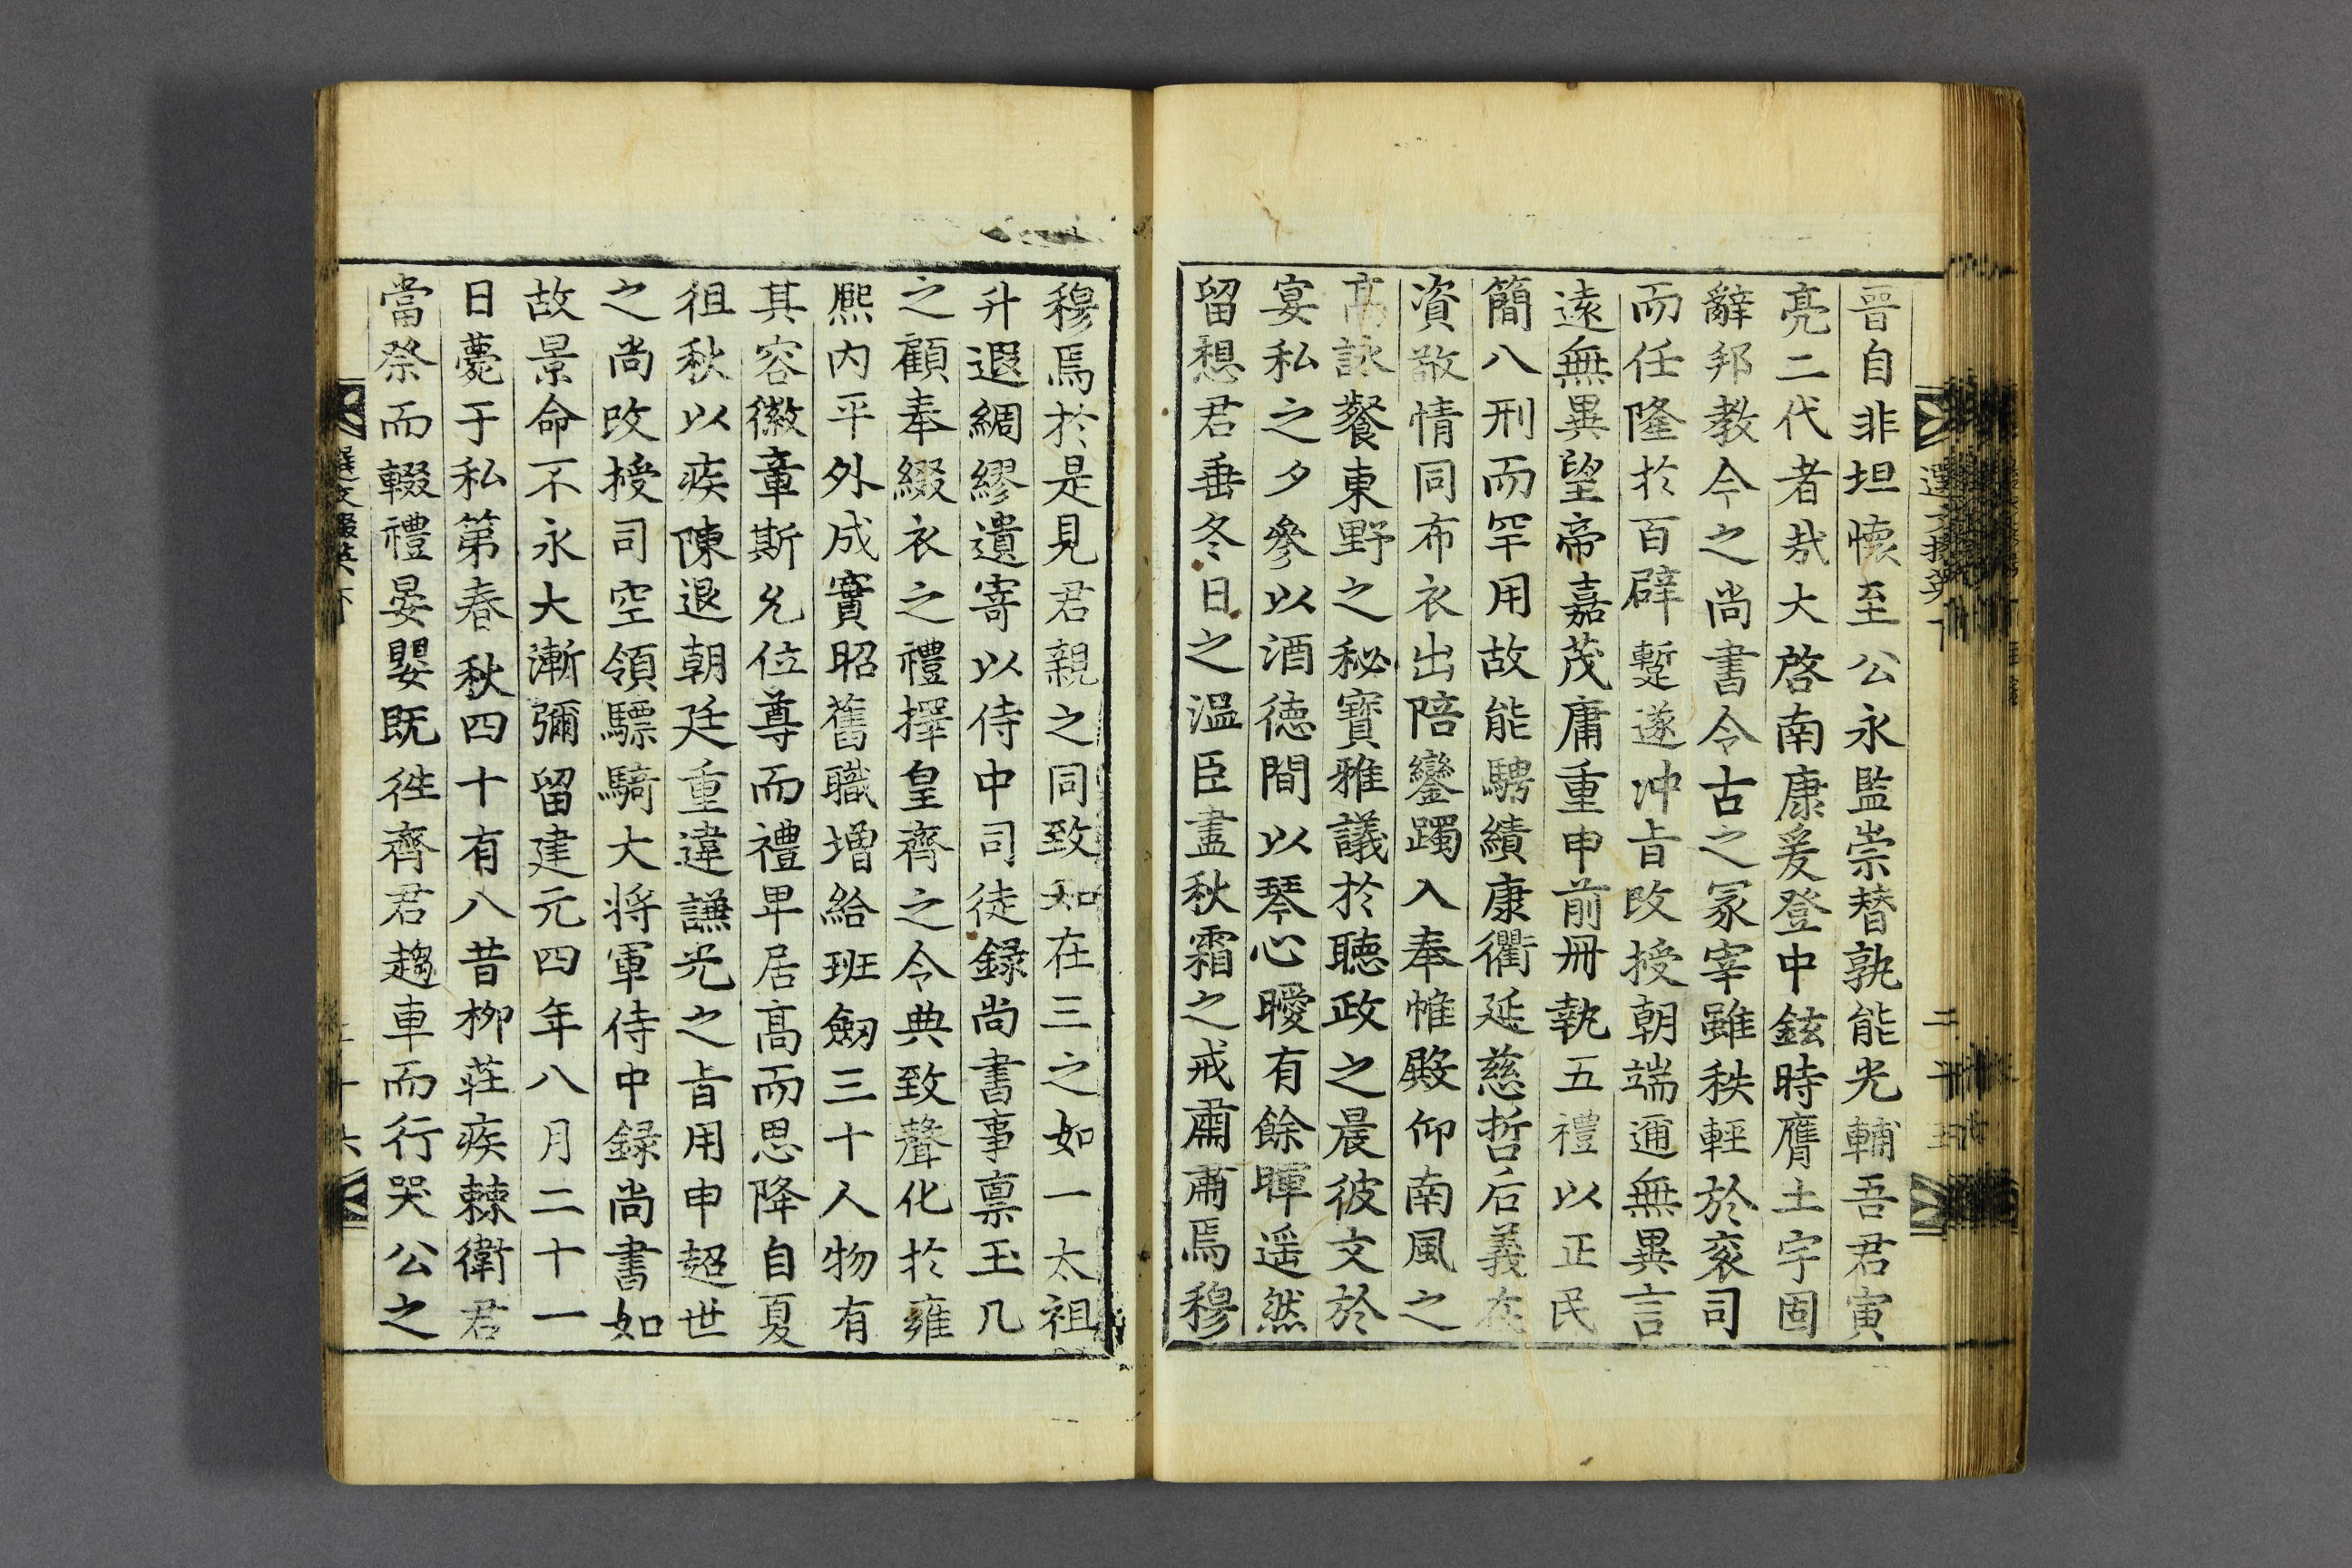 晉自非坦懷至公永監崇替孰能光輔吾君寅
亮二代者㢤大啓南康爰登中鉉時膺土宇固
辭邦教今之尚書令古之冢宰雖秩輕於衮司
而任隆於百辟蹔遂冲旨改授朝端邇無異言
遠無異望帝嘉茂庸重申前冊執五禮以正民
簡八刑而罕用故能騁績康衢延慈哲后義在
資敬情同布衣出陪鑾躅入奉帷殿仰南風之
高詠餐東野之秘寳雅議於聽政之晨彼文於
宴私之夕參以酒德間以琴心曖有餘暉遥然
留想君垂冬日之温臣盡秋霜之戒肅肅焉穆
穆焉於是見君親之同致知在三之如一太祖
升遐綢繆遺寄以侍中司徒録尚書事禀玉几
之顧奉綴衣之禮擇皇齊之令典致聲化於雍
熙内平外成實昭舊職增給班劒三十人物有
其容徽章斯允位尊而禮卑居高而思降自夏
徂秋以疾陳退朝廷重違謙光之旨用申超世
之尚改授司空領驃騎大將軍侍中録尚書如
故景命不永大漸彌留建元四年八月二十一
日薨于私第春秋四十有八昔柳莊疾棘衛君
當祭而輟禮晏嬰既徃齊君趨車而行哭公之
選文掇英下